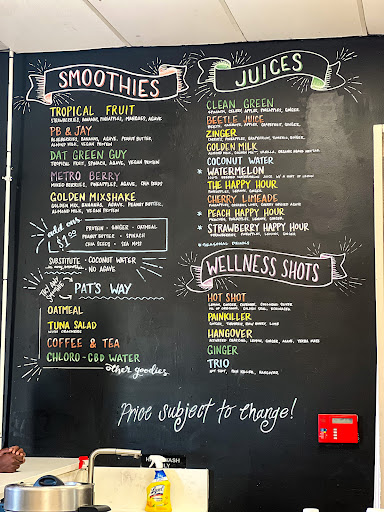 SMOOTHIES
TROPICAL FRUIT
STRAWBERRIES, BANANAS, PINEAPPLE, MANGOES, AGAVE
PB & JAY
BLUEBERRIES, BANANAS, AGAVE, PEANUT BUTTER,
ALMOND MILK, VEGAN PROTEIN
DAT GREEN GUY
TROPICAL FRUIT, SPINACH, AGAVE, VEGAN PROTEIN
METRO BERRY
MIXED BERRIES, PINEAPPLE, AGAVE, CHIA SEEDS
GOLDEN MIXSHAKE
GOLDEN MIX, BANANAS, AGAVE, PEANUT BUTTER,
ALMOND MILK, VEGAN PROTEIN
add on
$1.00
PROTEIN - GINGER - OATMEAL
PEANUT BUTTER - SPINACH
CHIA SEEDS - SEA MOSS
SUBSTITUTE - COCONUT WATER
- NO AGAVE
PAT'S WAY
OATMEAL
TUNA SALAD
WITH CRACKERS
COFFEE & TEA
CHLORO-CBD WATER
other goodies
JUICES
CLEAN GREEN
SPINACH, CELERY, APPLE, PINEAPPLE, GINGER
BEETLE JUICE
BEETS, CARROTS, APPLE, GRAPEFRUIT, GINGER
ZINGER
GOLDEN MILK
COCONUT WATER
* WATERMELON
THE HAPPY HOUR
PINEAPPLE, LEMON, GINGER
CHERRY LIMEADE
* PEACH HAPPY HOUR
* STRAWBERRY HAPPY HOUR
* SEASONAL DRINKS
WELLNESS SHOTS
HOT SHOT
PAINKILLER
HANGOVER
GINGER
TRIO
HOT SHOT, PAIN KILLER, HANGOVER
Price subject to change!
WASH
ONLY
LYSOL